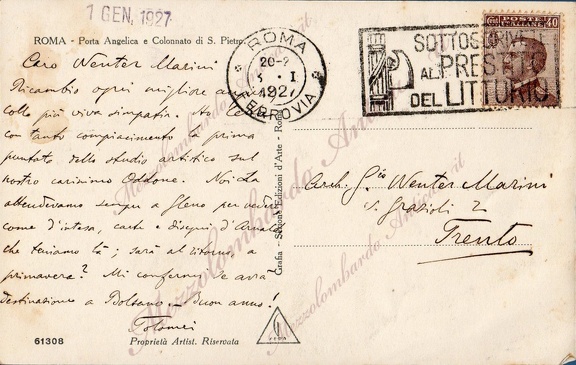 1 GEN. 1927
ROMA - Porta Angelica e Colonnato di S. Pietro
Caro Wenter Marini
Ricambio ogni migliore augurio
colla più viva simpatia. Ho letto
con tanto compiacimento la prima
puntata dello studio artistico sul
nostro carissimo Oddone. Noi La
attendevamo sempre a Gleno per vedere
come d'intesa, carte e disegni d'Arnaldo
che teniamo là; sarà al ritorno, a
primavera? Mi confermi se avrà
destinazione a Bolzano - Buon anno!
Tolomei
61308
Proprietà Artist. Riservata
Grafia - Sezione Edizioni d'Arte - Roma
VERA
ROMA
20-2
3 · I
1927
FERROVIA
SOTTOSCRIVETE
AL PRESTITO
DEL LITTORIO
POSTE ITALIANE
Cent 40
Arch. Gio Wenter Marini
v. Grazioli 2
Trento
Mezzolombardo Antica.it